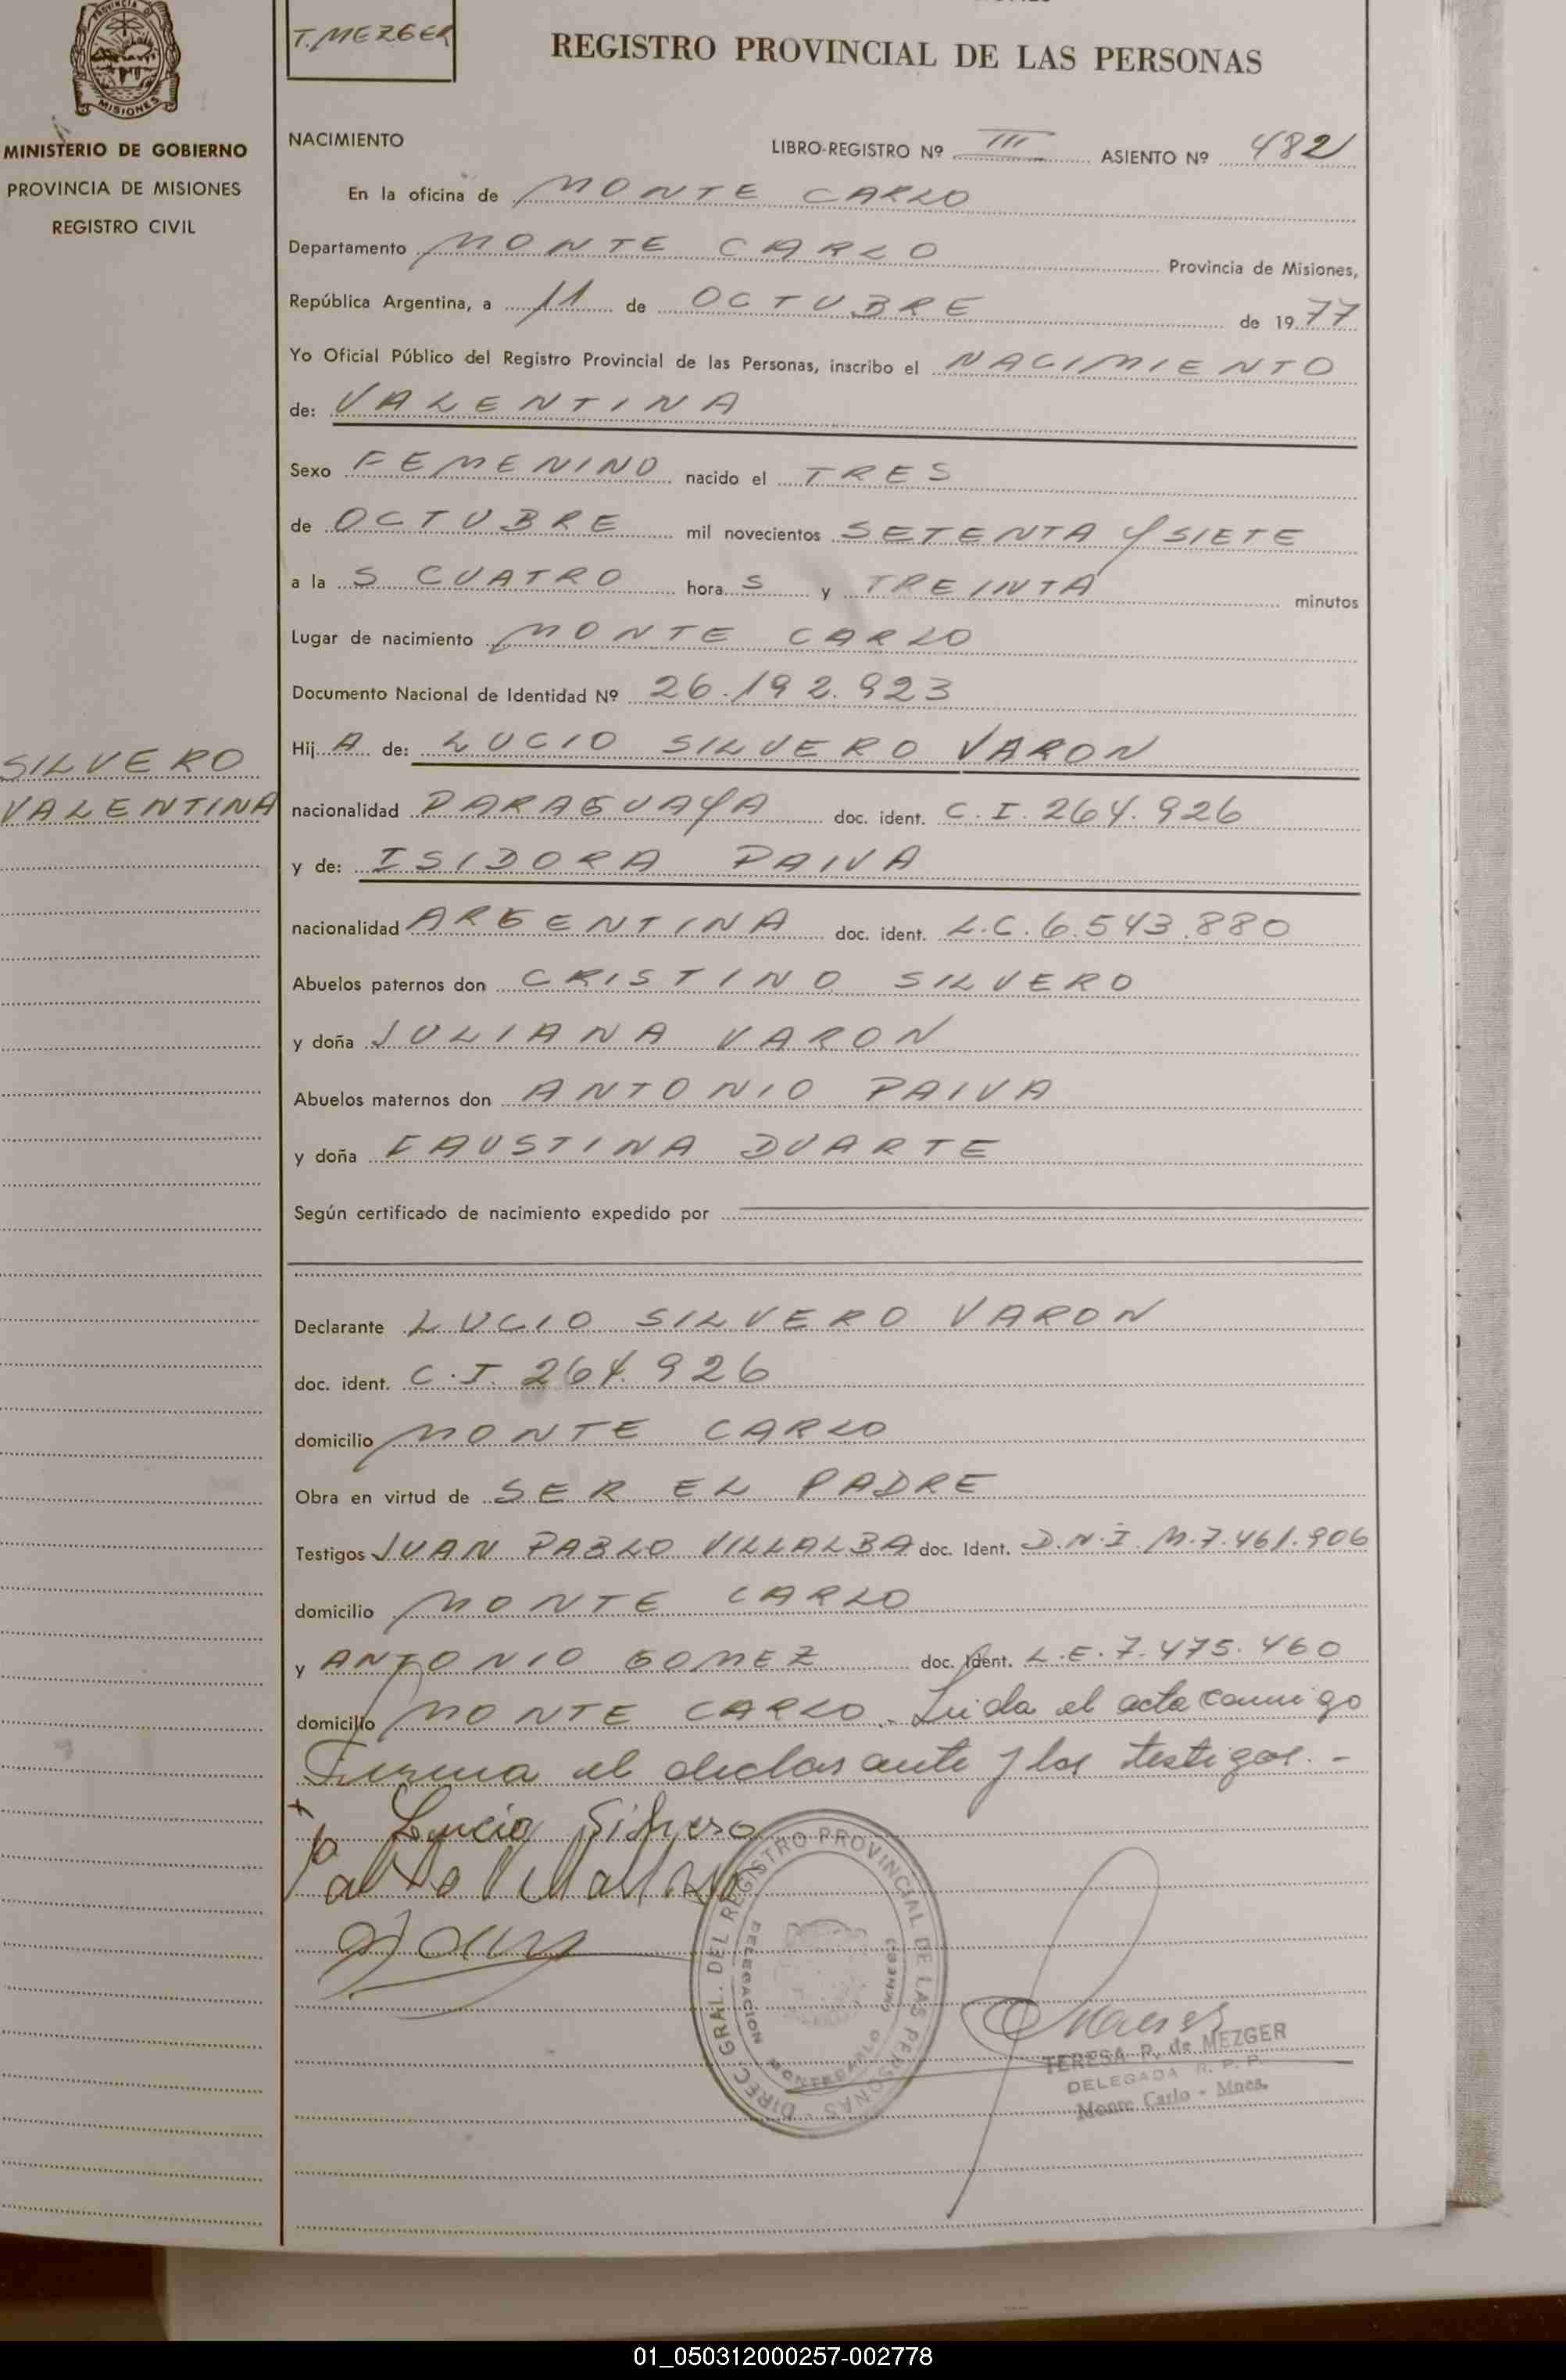 MISIONES
T. MEZGER
REGISTRO PROVINCIAL DE LAS PERSONAS
MINISTERIO DE GOBIERNO
PROVINCIA DE MISIONES
REGISTRO CIVIL
NACIMIENTO LIBRO-REGISTRO Nº III ASIENTO Nº 482
En la oficina de MONTE CARLO
Departamento MONTE CARLO Provincia de Misiones,
República Argentina, a 11 de OCTUBRE de 1977
Yo Oficial Público del Registro Provincial de las Personas, inscribo el NACIMIENTO
de: VALENTINA
Sexo FEMENINO nacido el TRES
de OCTUBRE mil novecientos SETENTA Y SIETE
a la S CUATRO hora S y TREINTA minutos
Lugar de nacimiento MONTE CARLO
Documento Nacional de Identidad Nº 26.192.923
SILVERO
VALENTINA
Hij A de: LUCIO SILVERO VARON
nacionalidad PARAGUAYA doc. ident. C.I. 264.926
y de: ISIDORA PAIVA
nacionalidad ARGENTINA doc. ident. L.C. 6.543.880
Abuelos paternos don CRISTINO SILVERO
y doña JULIANA VARON
Abuelos maternos don ANTONIO PAIVA
y doña FAUSTINA DUARTE
Según certificado de nacimiento expedido por
Declarante LUCIO SILVERO VARON
doc. ident. C.I. 264.926
domicilio MONTE CARLO
Obra en virtud de SER EL PADRE
Testigos JUAN PABLO VILLALBA doc. Ident. D.N.I. M.7.461.906
domicilio MONTE CARLO
y ANTONIO GOMEZ doc. Ident. L.E. 7.475.460
domicilio MONTE CARLO.- Leida el acta conmigo
Firma el declarante y los testigos.-
Lucio Silvero
Pablo Villalba
DIREC. GRAL. DEL REGISTRO PROVINCIAL DE LAS PERSONAS
DELEGACION MONTECARLO
TERESA P. de MEZGER
DELEGADA R. P. P.
Monte Carlo - Mnes.
01_050312000257-002778